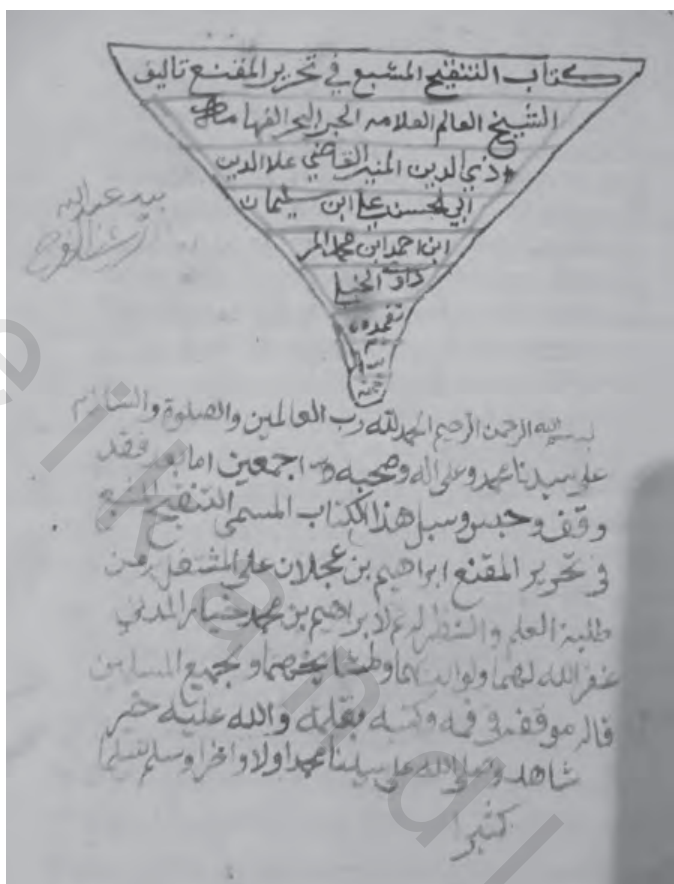 كتاب التنقيح المشبع في تحرير المقنع تاليف
الشيخ العالم العلامه الحبر البحر الفهامه
الدين المنير القاضي علا الدين
ابي الحسن علي ابن سليمان
ابن احمد ابن محمد المر
داوي الحنبلي
تغمده
الله
بيد عبدالله
بسم الله الرحمن الرحيم الحمد لله رب العالمين والصلوة والسلام
على سيدنا محمد وعلى اله وصحبه اجمعين اما بعد فقد
وقف وحبس وسبل هذا الكتاب المسمى التنقيح المشبع
في تحرير المقنع ابراهيم بن عجلان على المشتغل من
طلبة العلم والنظر لابراهيم بن محمد المدني
غفر الله لهما ولوالديهما ولمشايخهما ولجميع المسلمين
قاله موقفه في فمه وكتبه بقلمه والله عليه خير
شاهد وصلى الله على سيدنا محمد اولا واخرا وسلم تسليما
كثيرا
elkandl